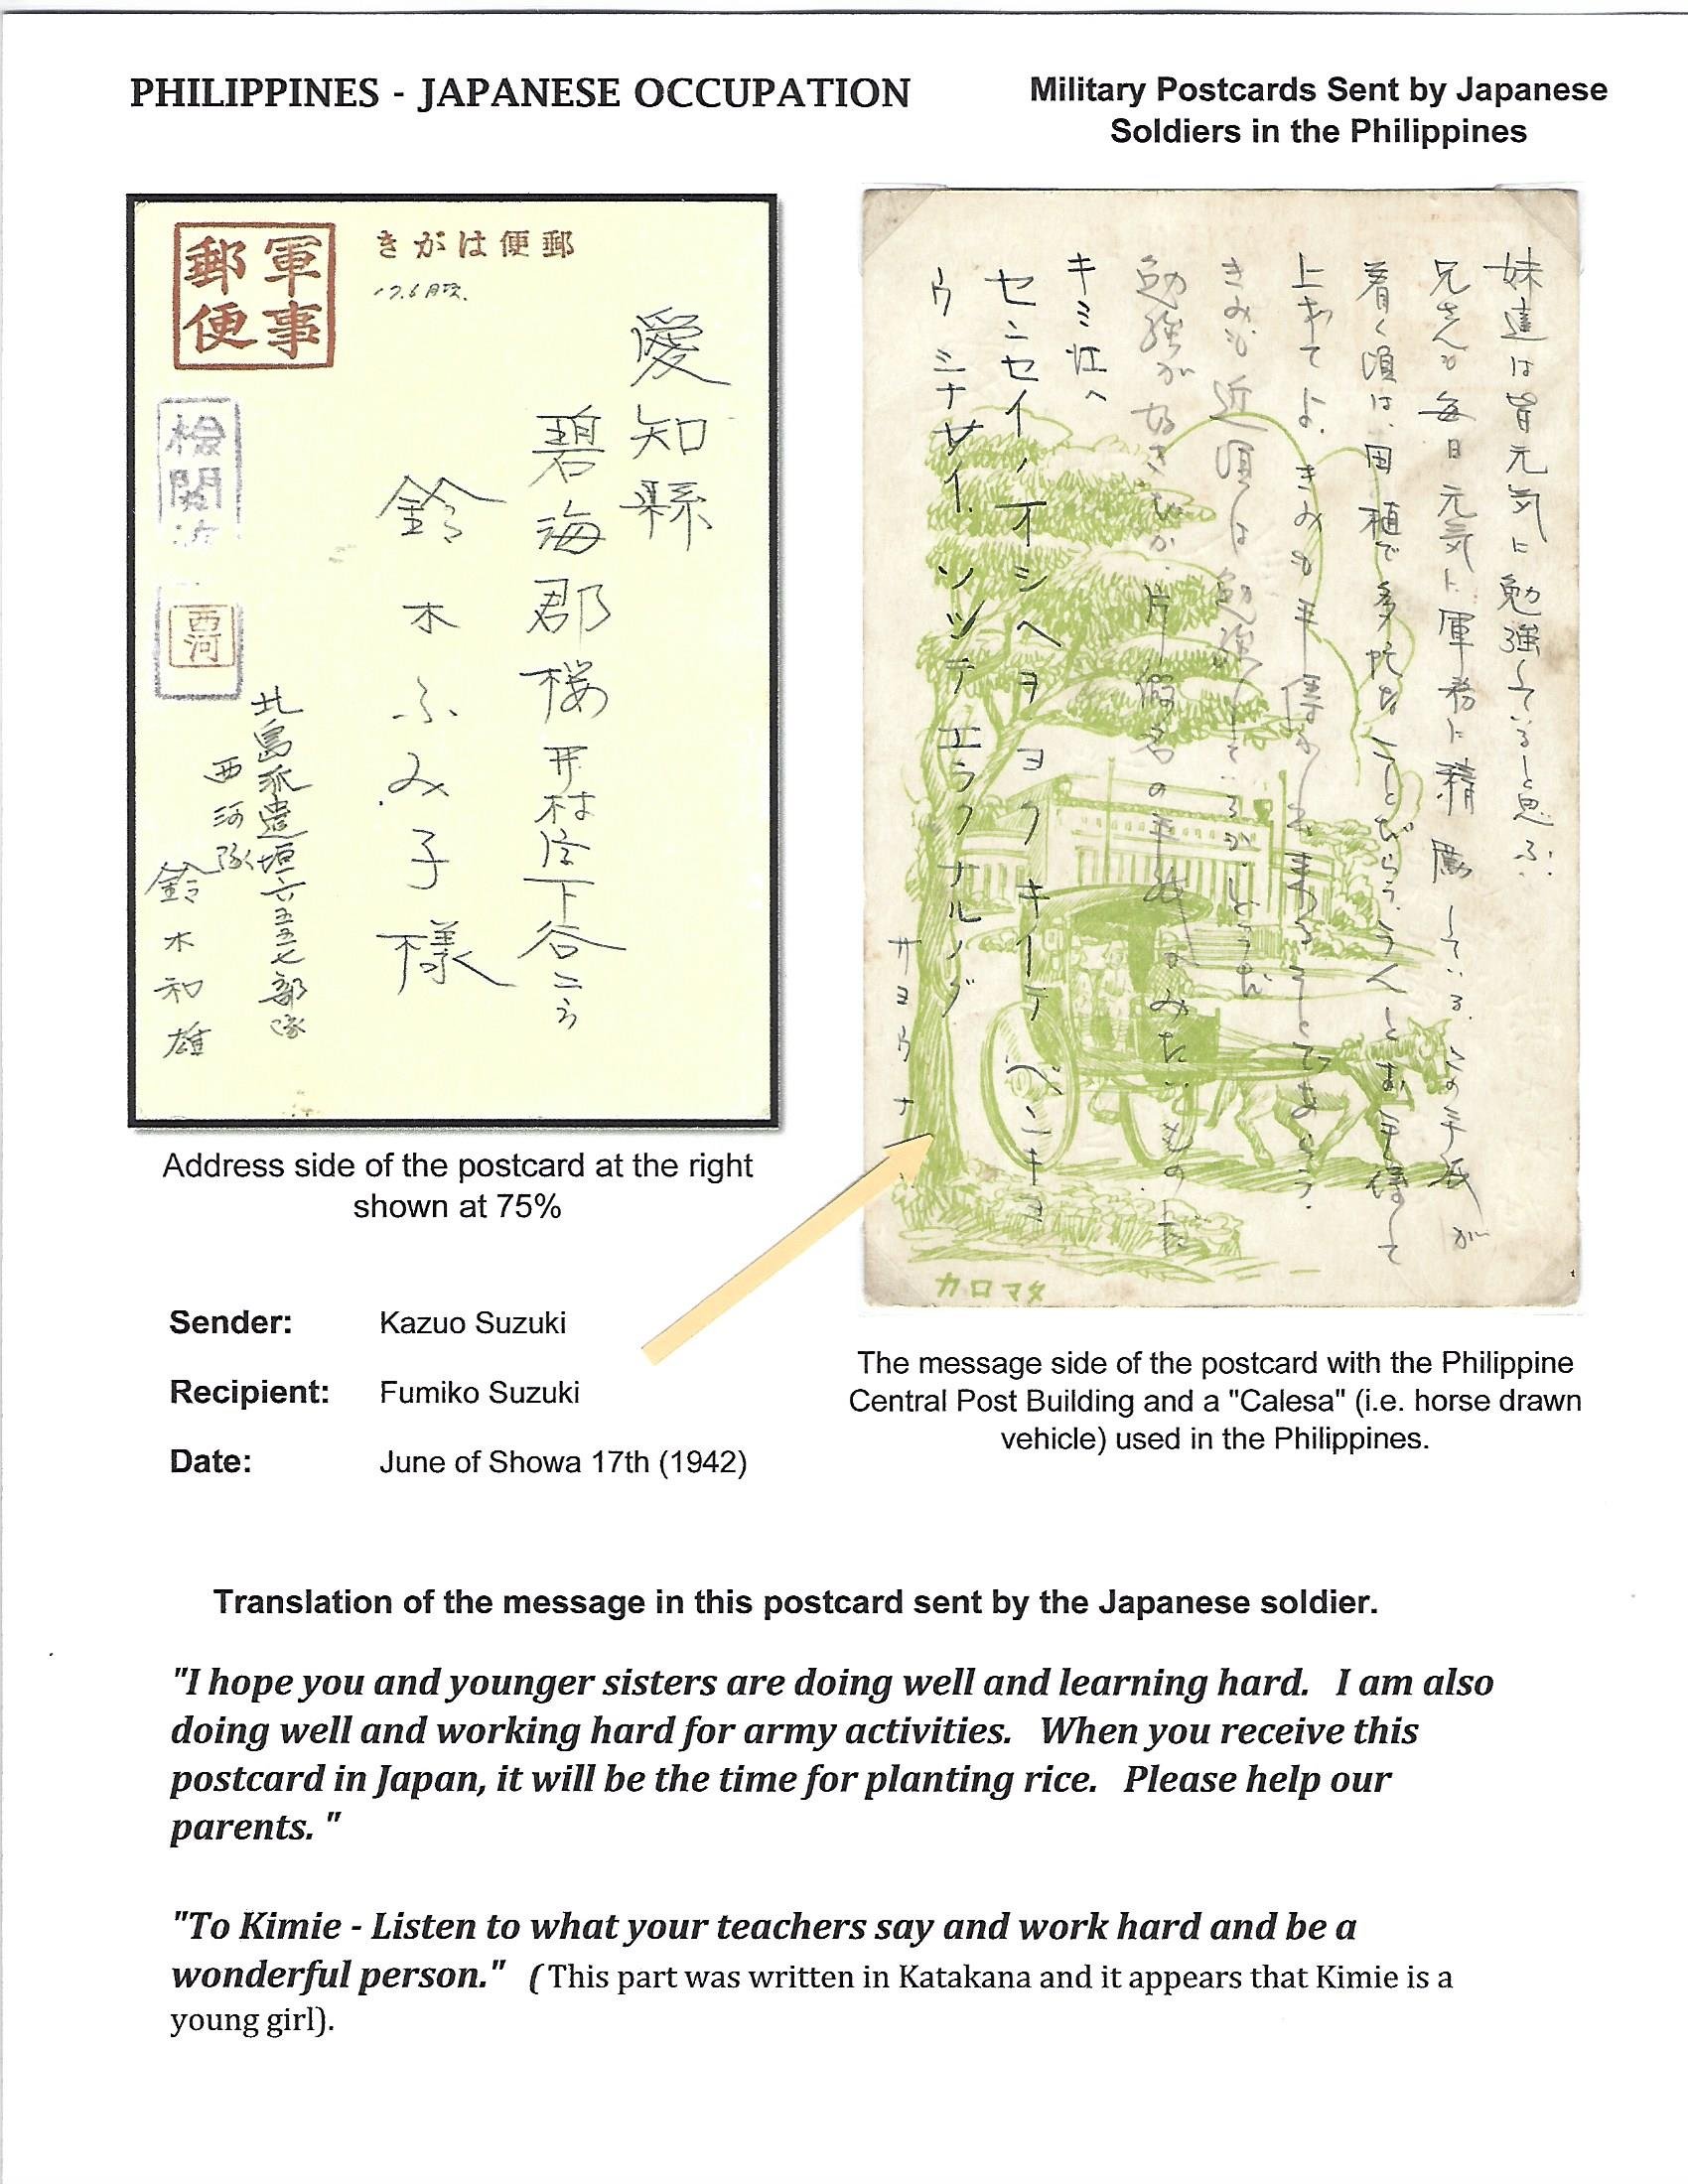 PHILIPPINES - JAPANESE OCCUPATION
Military Postcards Sent by Japanese
Soldiers in the Philippines
軍事
郵便
きがは便郵
17.6月
検閲済
西河
愛知縣
碧海郡桜井村
下谷
鈴木ふみ子様
北島派遣垣六五五七部隊
西河隊
鈴木和雄
妹達は皆元気に勉強していると思ふ.
兄さんも毎日元気に軍務に精励している.この手紙が
着く頃は、田植で多忙なことだらう.うんとお手傳して
上あてよ.きみも手傳
きみも近頃は勉強しているか.どうだ
勉強が好きか.片假名の手紙
キミ江へ
センセイノオシヘヨヨクキイテベンキヨ
ウシナサイ.ソシテエラクナルノダ
サヨウナ
カロマタ
Address side of the postcard at the right
shown at 75%
Sender: Kazuo Suzuki
Recipient: Fumiko Suzuki
Date: June of Showa 17th (1942)
The message side of the postcard with the Philippine
Central Post Building and a "Calesa" (i.e. horse drawn
vehicle) used in the Philippines.
Translation of the message in this postcard sent by the Japanese soldier.
"I hope you and younger sisters are doing well and learning hard. I am also
doing well and working hard for army activities. When you receive this
postcard in Japan, it will be the time for planting rice. Please help our
parents. "
"To Kimie - Listen to what your teachers say and work hard and be a
wonderful person." (This part was written in Katakana and it appears that Kimie is a
young girl).